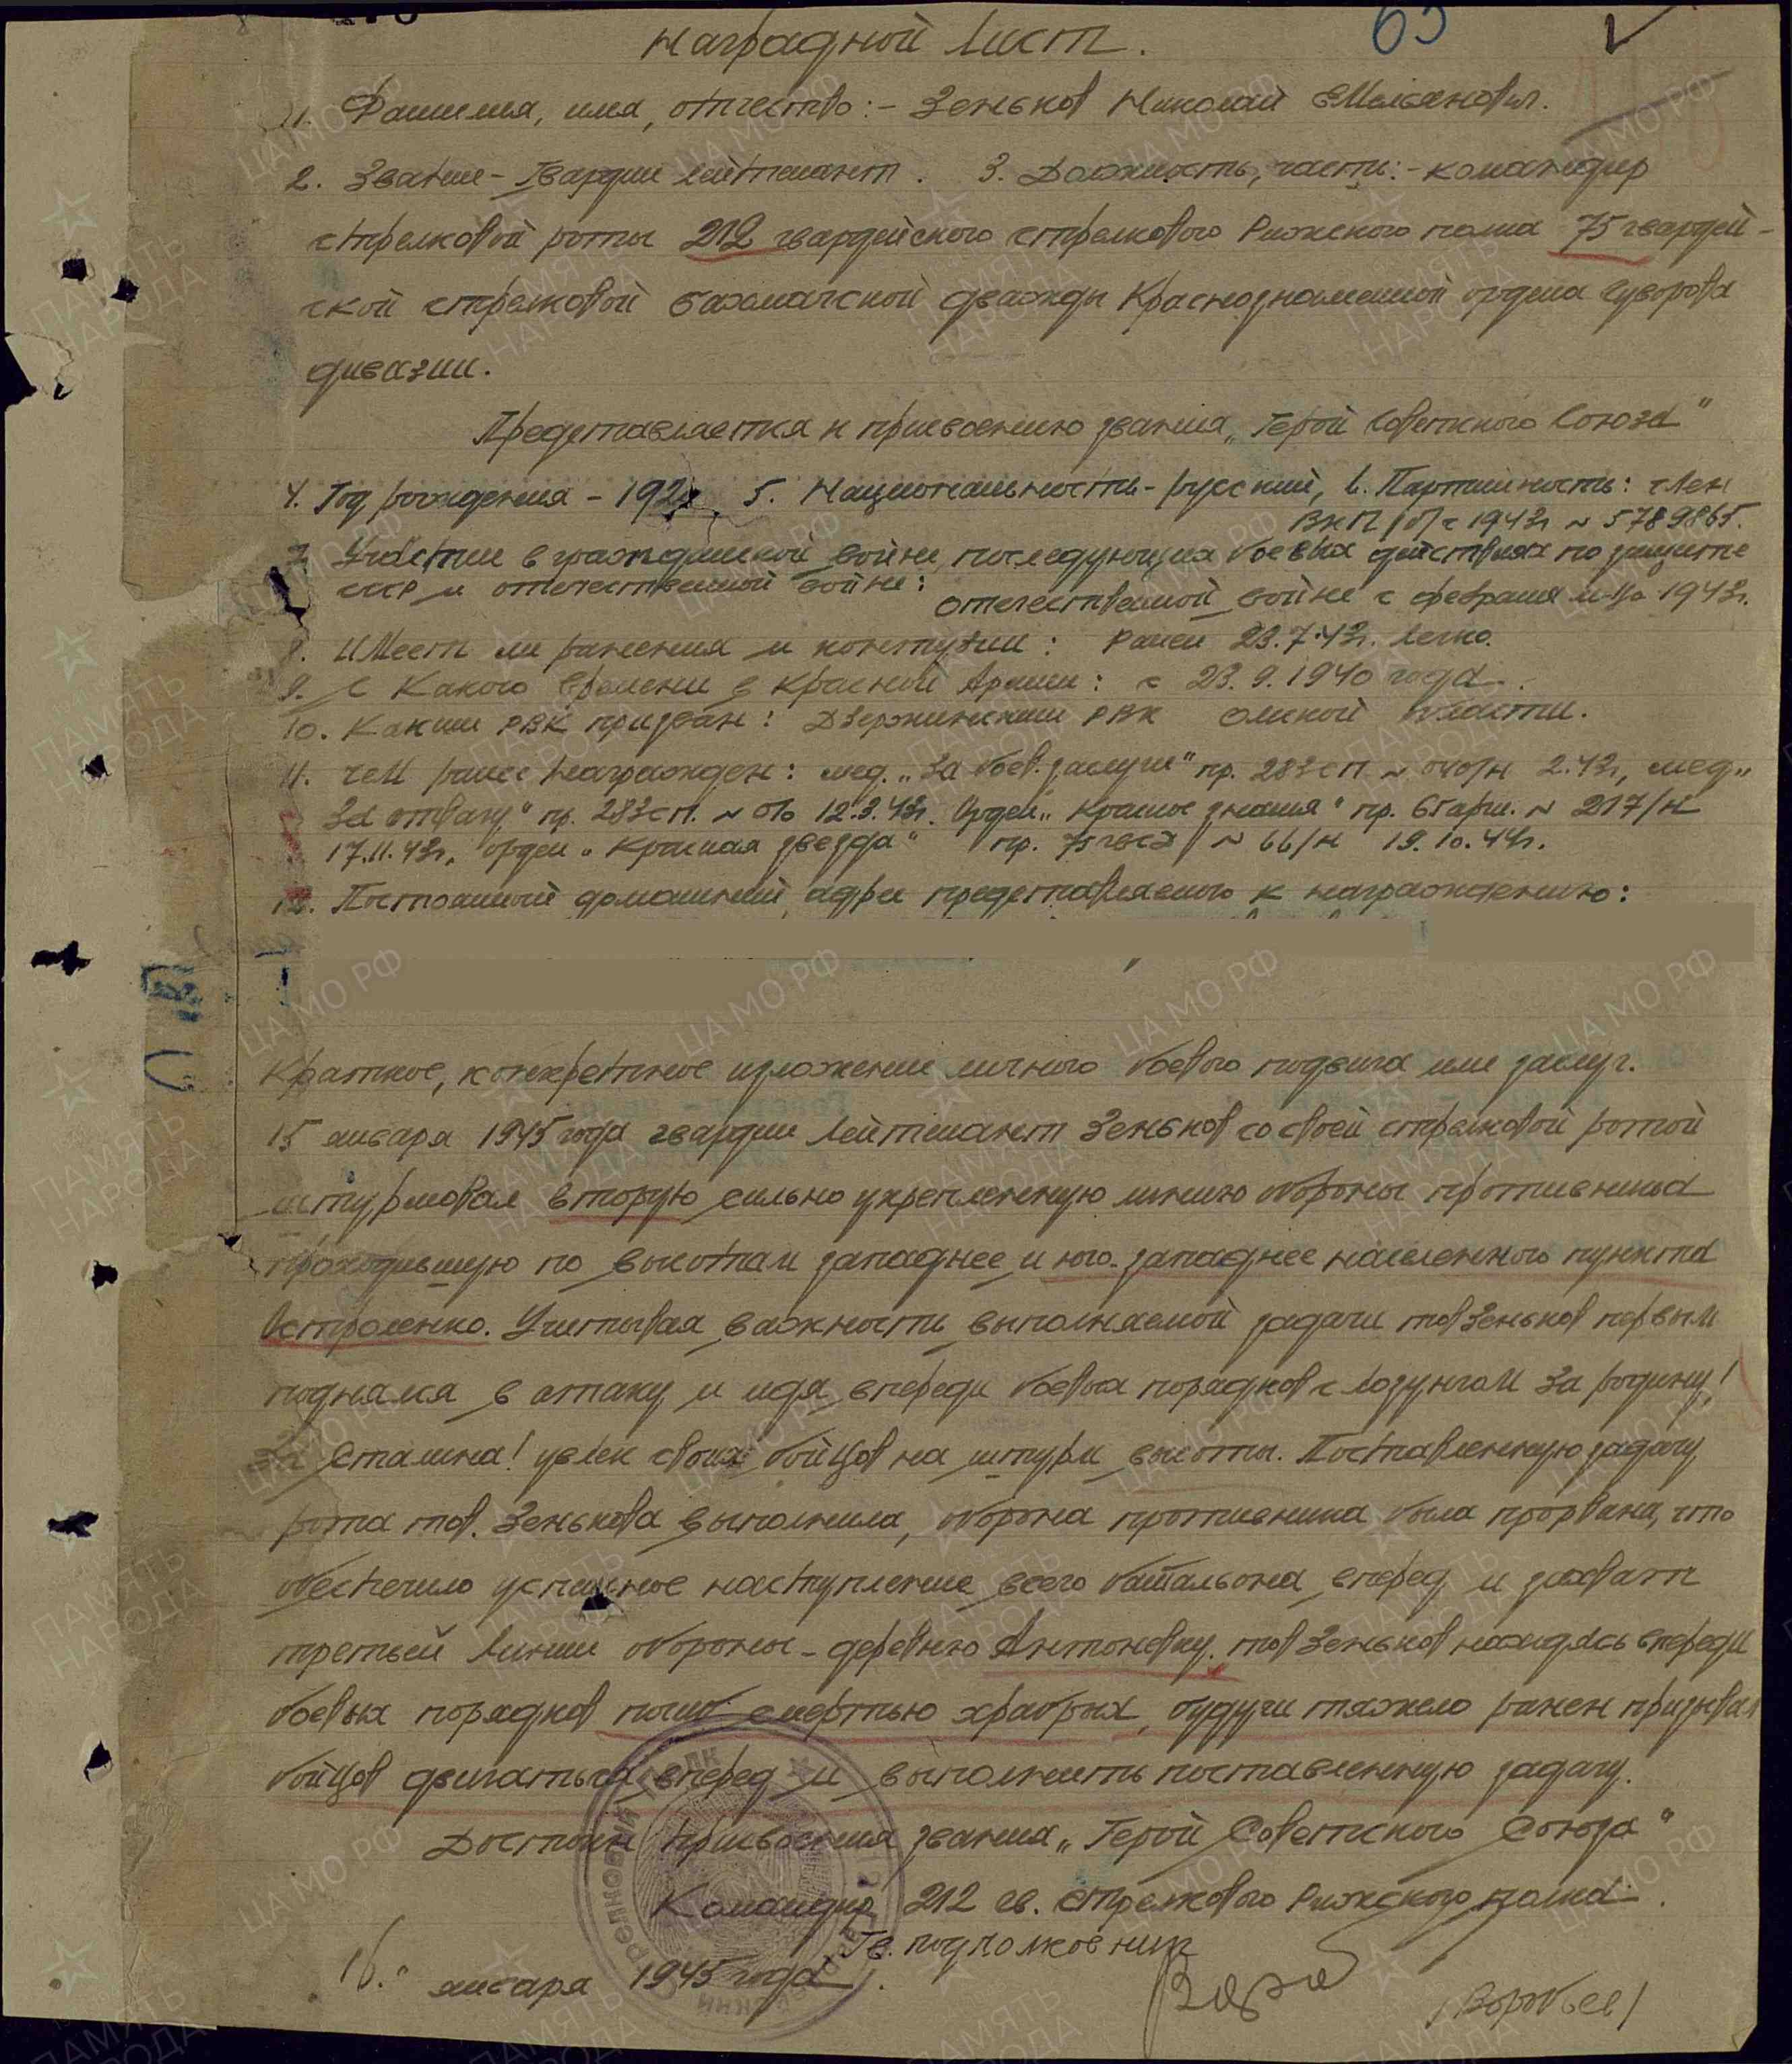 Наградной Лист.
63
1. Фамилия, имя, отчество:- Зеньков Николай Емельянович.
2. Звание- Гвардии лейтенант. 3. Должность, часть:- командир
стрелковой роты 212 гвардейского стрелкового Рижского полка 75 гвардей-
ской стрелковой Бахмачской дважды Краснознаменной ордена Суворова
дивизии.
Представляется к присвоению звания „Герой Советского Союза"
4. Год рождения - 192 5. Национальность- русский, 6. Партийность: член
ВКП/б/ с 1943г № 5789865.
7. Участие в гражданской войне, последующих боевых действиях по защите
СССР и отечественной войне: отечественной войне с февраля м-ца 1943г.
8. Имеет ли ранения и контузии: Ранен 23.7.43г. легко.
9. С Какого времени в Красной Армии: с 23.9.1940 года.
10. Каким РВК призван: Дзержинским РВК Омской области.
11. Чем ранее награжден: мед. „За боев. заслуги" пр. 283сп № 040/н 2.43г, мед „
За отвагу" пр. 283сп. № 016 12.3.43г. Орден „Красное знамя" пр. 65 арм. № 217/н
17.11.43г, орден „Красная звезда" пр. 75 гвсд № 66/н 19.10.44г.
12. Постоянный домашний адрес представляемого к награждению:
Краткое, конкретное изложение личного боевого подвига или заслуг.
15 января 1945 года гвардии лейтенант Зеньков со своей стрелковой ротой
штурмовал вторую сильно укрепленную линию обороны противника
проходившую по высотам западнее и юго-западнее населенного пункта
Остроленко. Учитывая важность выполняемой задачи тов Зеньков первым
поднялся в атаку и идя впереди боевых порядков с лозунгом За родину!
За Сталина! увлек своих бойцов на штурм высоты. Поставленную задачу
рота тов. Зенькова выполнила, оборона противника была прорвана, что
обеспечило успешное наступление всего батальона вперед и захват
третьей линии обороны - деревню Антоновку. тов Зеньков находясь впереди
боевых порядков погиб смертью храбрых, будучи тяжело ранен призывал
бойцов двигаться вперед и выполнить поставленную задачу.
Достоин присвоения звания „Герой Советского Союза"
Командир 212 гв. стрелкового Рижского полка
Гв. подполковник
16. января 1945 года.
/Воробьев/
СТРЕЛКОВЫЙ ПОЛК
ПАМЯТЬ НАРОДА
ЦА МО РФ